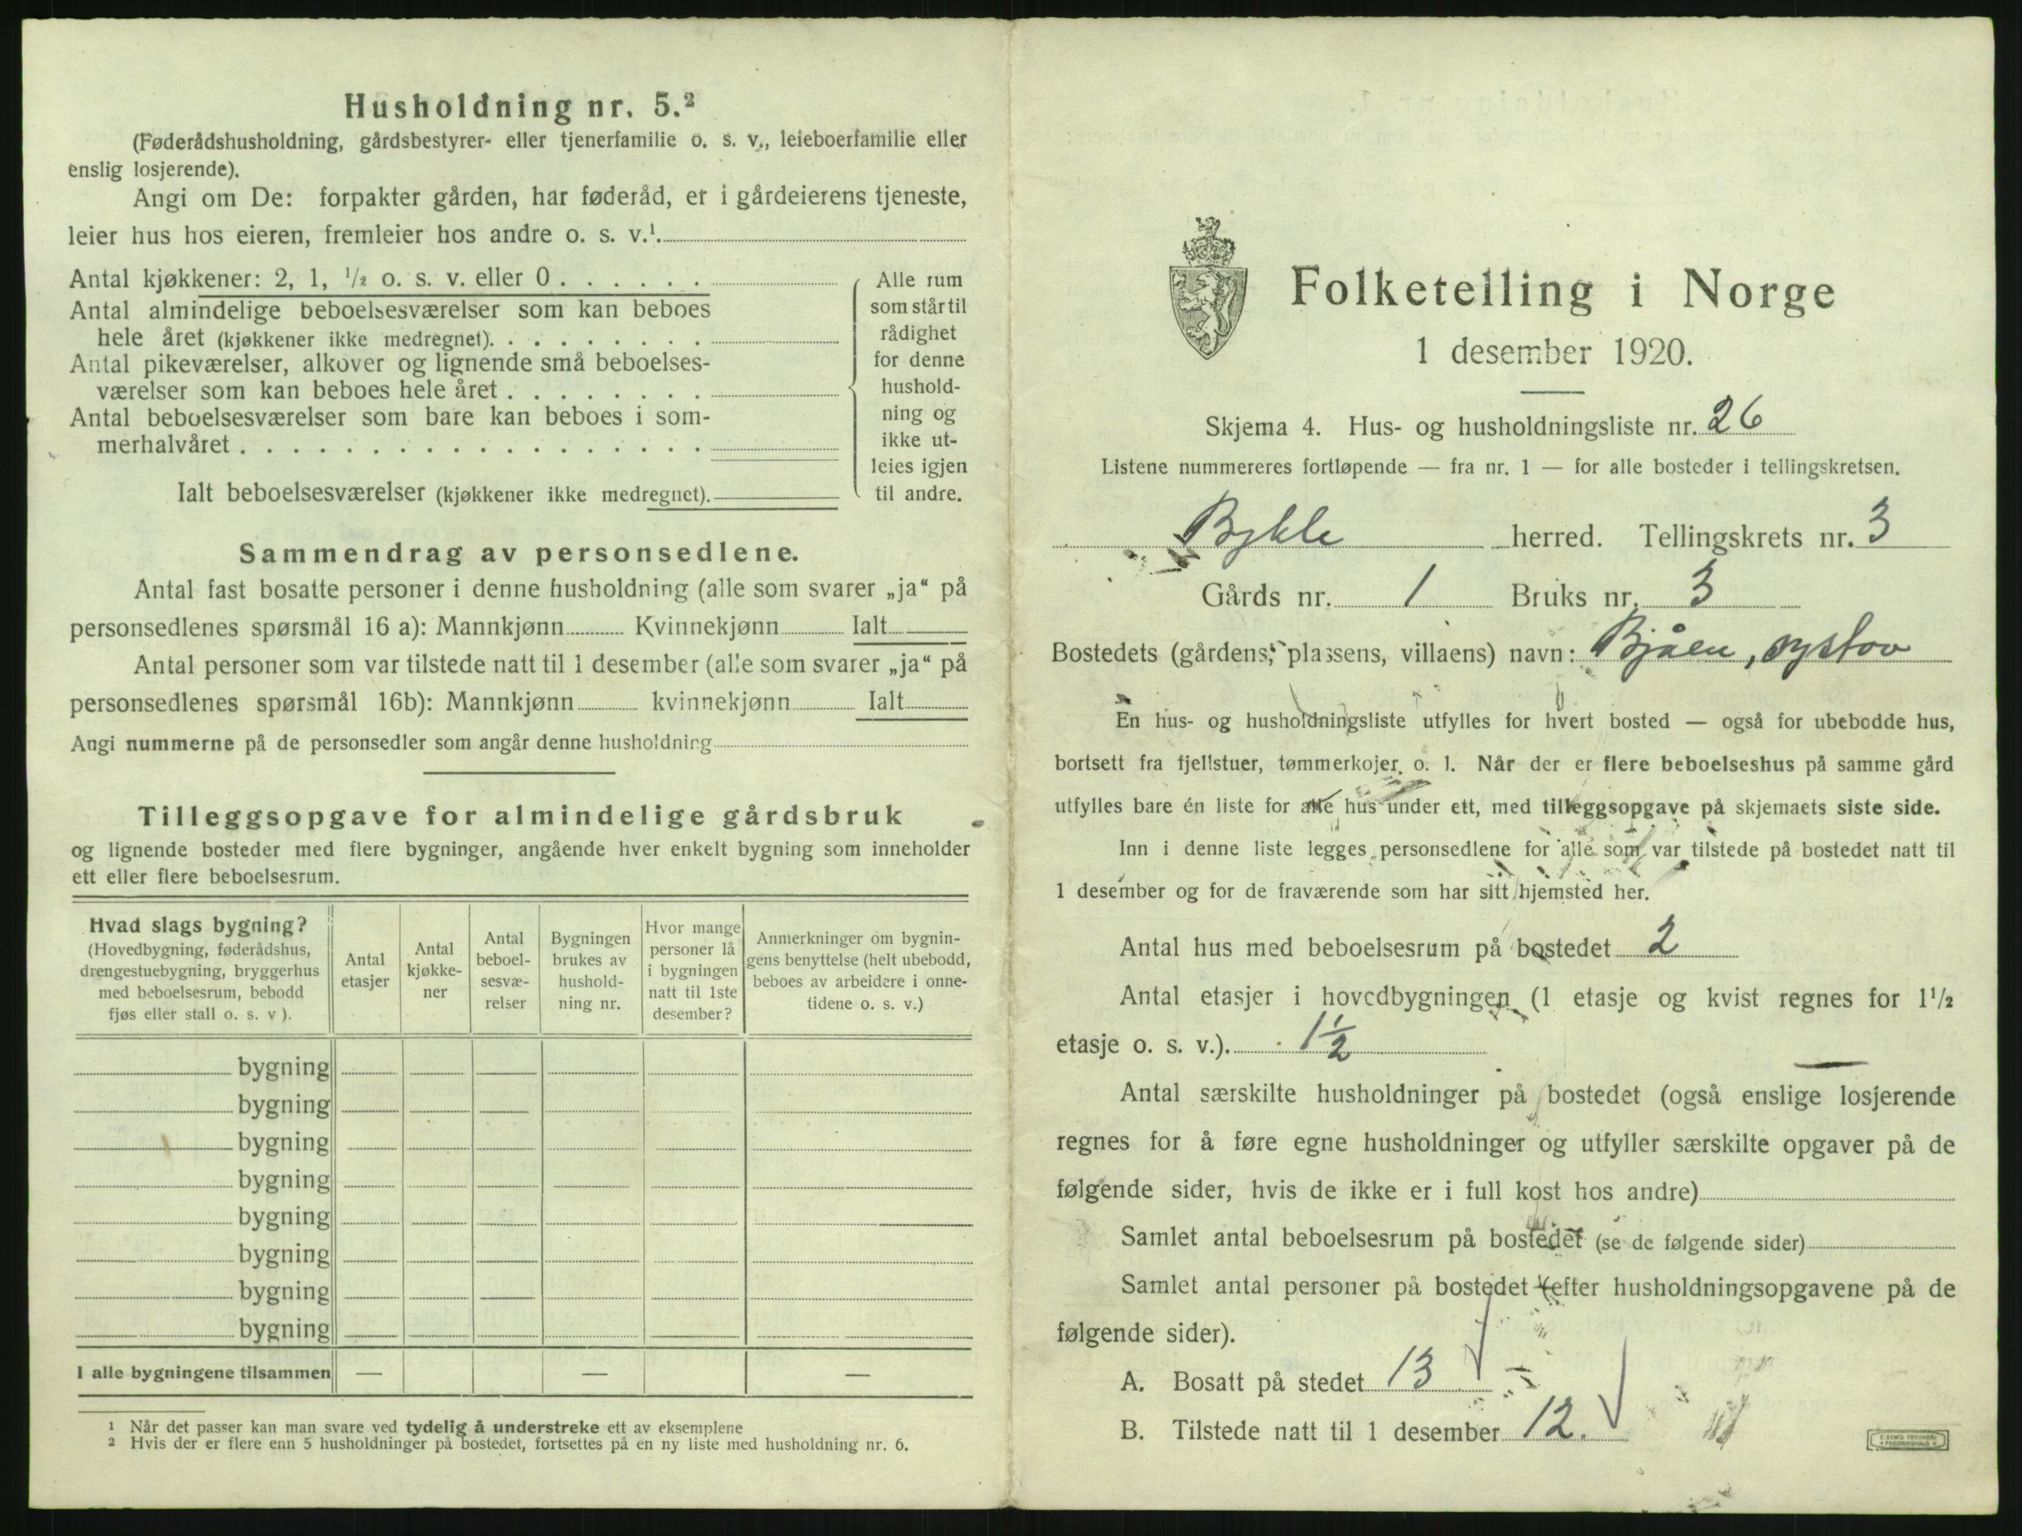 Husholdning nr. 5.²
(Føderådshusholdning, gårdsbestyrer- eller tjenerfamilie o. s. v., leieboerfamilie eller
enslig losjerende).
Angi om De: forpakter gården, har føderåd, er i gårdeierens tjeneste,
leier hus hos eieren, fremleier hos andre o. s. v.¹.
Antal kjøkkener: 2, 1, ½ o. s. v. eller 0 . . . . . .
Antal almindelige beboelsesværelser som kan beboes
hele året (kjøkkener ikke medregnet). . . . . . . . .
Antal pikeværelser, alkover og lignende små beboelses-
værelser som kan beboes hele året . . . . . . . .
Antal beboelsesværelser som bare kan beboes i som-
merhalvåret . . . . . . . . . . . . . . . . . .
Ialt beboelsesværelser (kjøkkener ikke medregnet).
Alle rum
som står til
rådighet
for denne
hushold-
ning og
ikke ut-
leies igjen
til andre.
Sammendrag av personsedlene.
Antal fast bosatte personer i denne husholdning (alle som svarer „ja“ på
personsedlenes spørsmål 16 a): Mannkjønn Kvinnekjønn Ialt
Antal personer som var tilstede natt til 1 desember (alle som svarer „ja“ på
personsedlenes spørsmål 16b): Mannkjønn kvinnekjønn Ialt
Angi nummerne på de personsedler som angår denne husholdning
Tilleggsopgave for almindelige gårdsbruk
og lignende bosteder med flere bygninger, angående hver enkelt bygning som inneholder
ett eller flere beboelsesrum.
Hvad slags bygning?
(Hovedbygning, føderådshus,
drengestuebygning, bryggerhus
med beboelsesrum, bebodd
fjøs eller stall o. s. v ).
Antal
etasjer
Antal
kjøkke-
ner
Antal
beboel-
sesvæ-
relser
Bygningen
brukes av
hushold-
ning nr.
Hvor mange
personer lå
i bygningen
natt til 1ste
desember?
Anmerkninger om bygnin-
gens benyttelse (helt ubebodd,
beboes av arbeidere i onne-
tidene o. s. v.)
bygning
bygning
bygning
bygning
bygning
bygning
bygning
bygning
I alle bygningene tilsammen — — —
¹ Når det passer kan man svare ved tydelig å understreke ett av eksemplene
² Hvis der er flere enn 5 husholdninger på bostedet, fortsettes på en ny liste med husholdning nr. 6.
Folketelling i Norge
1 desember 1920.
Skjema 4. Hus- og husholdningsliste nr. 26
Listene nummereres fortløpende — fra nr. 1 — for alle bosteder i tellingskretsen.
Bykle herred. Tellingskrets nr. 3
Gårds nr. 1 Bruks nr. 3
Bostedets (gårdens, plassens, villaens) navn: Bjåen, systov
En hus- og husholdningsliste utfylles for hvert bosted — også for ubebodde hus,
bortsett fra fjellstuer, tømmerkojer o. l. Når der er flere beboelseshus på samme gård
utfylles bare én liste for alle hus under ett, med tilleggsopgave på skjemaets siste side.
Inn i denne liste legges personsedlene for alle som var tilstede på bostedet natt til
1 desember og for de fraværende som har sitt hjemsted her.
Antal hus med beboelsesrum på bostedet 2
Antal etasjer i hovedbygningen (1 etasje og kvist regnes for 1½
etasje o. s. v.). 1½
Antal særskilte husholdninger på bostedet (også enslige losjerende
regnes for å føre egne husholdninger og utfyller særskilte opgaver på de
følgende sider, hvis de ikke er i full kost hos andre)
Samlet antal beboelsesrum på bostedet (se de følgende sider)
Samlet antal personer på bostedet (efter husholdningsopgavene på de
følgende sider).
A. Bosatt på stedet 13
B. Tilstede natt til 1 desember 12.